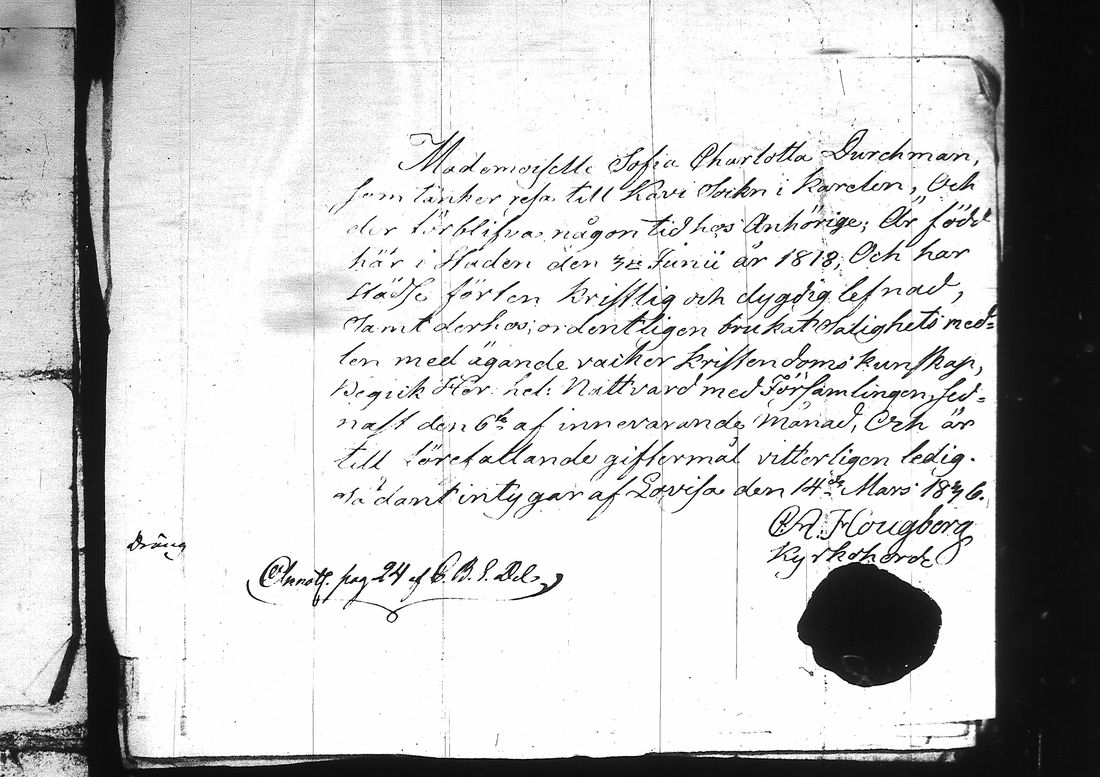 Mademoiselle Sofia Charlotta Durchman,
som tänker resa till Kavi Sockn i Karelen, Och
der förblifva någon tid hos Anhörige; Är född
här i Staden den 3je Junii år 1818, Och har
städse förten kristlig och dygdig lefnad,
samt derhos ordentligen brukat Salighets med=
len med ägande vacker kristendoms kunskap,
Begick Her: hel: Nattvard med Församlingen sed=
nast den 6te af innevarande Månad, Och är
till förefallande giftermål vitterligen ledig.
Sådant intygar af Lovisa den 14de Mars 1836.
C.A. Hougberg
Kyrkoherde
Dräng
Annot. pag 24 af C. B. I. Del